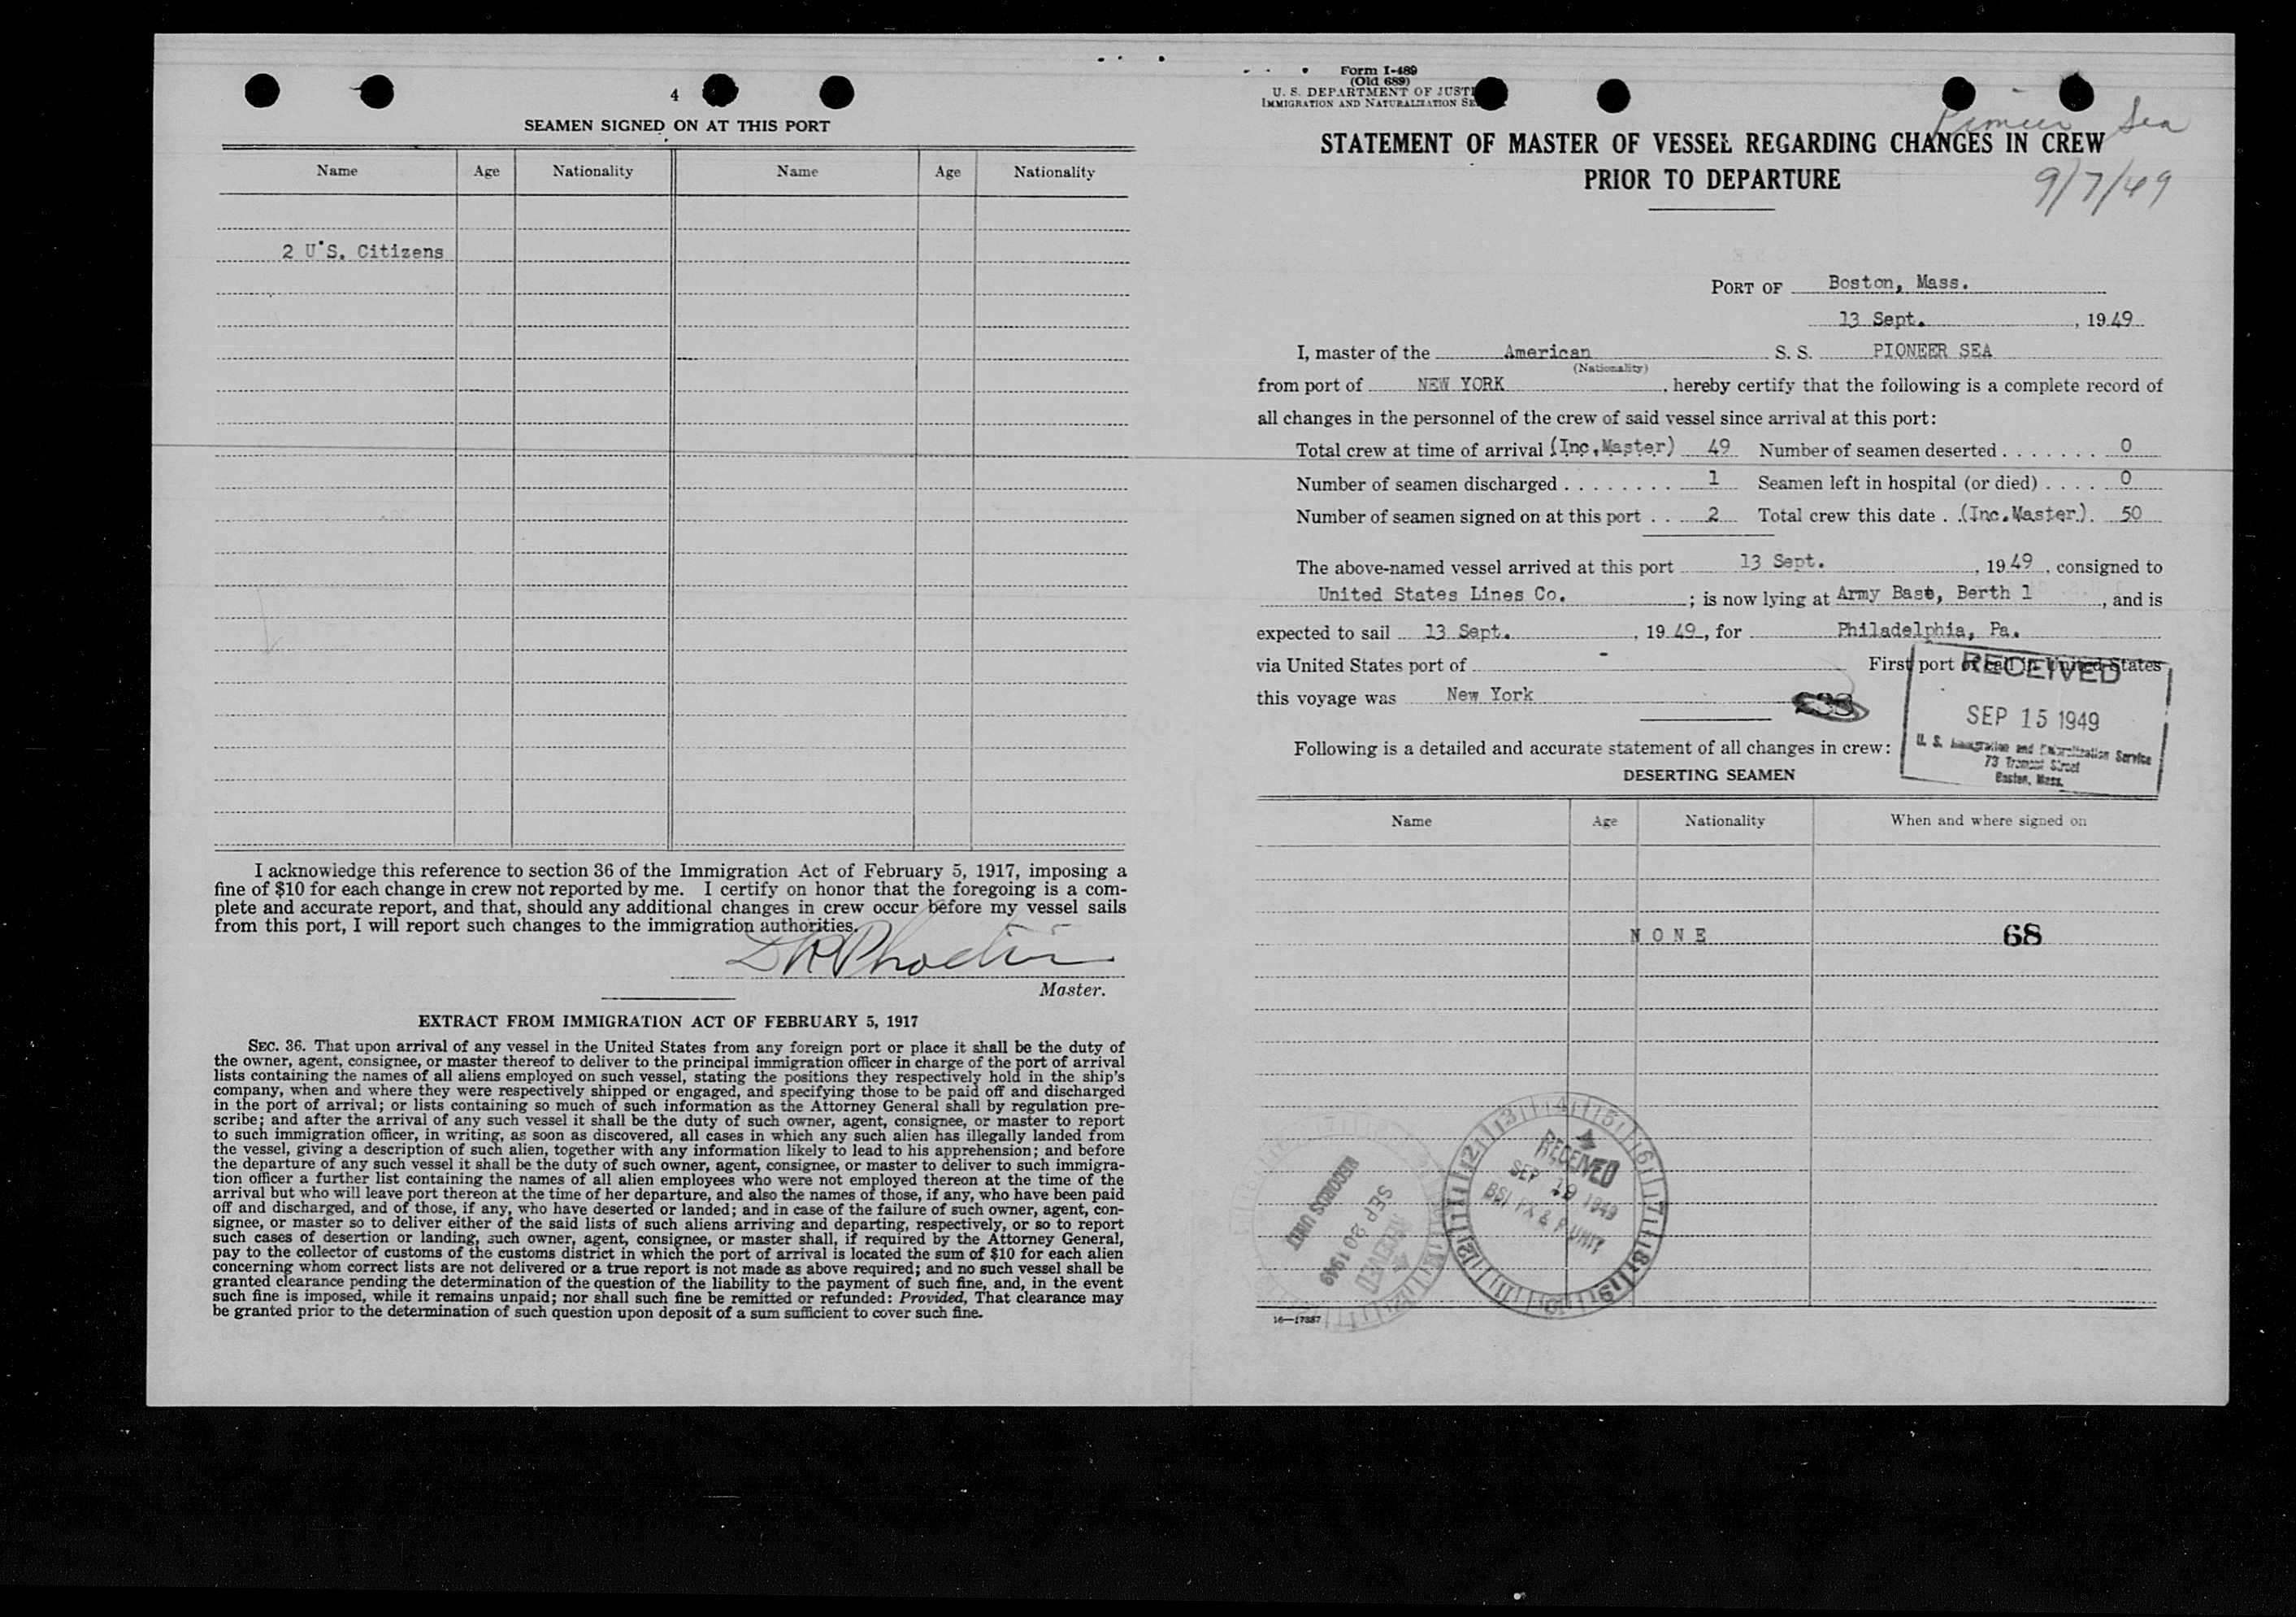 4
SEAMEN SIGNED ON AT THIS PORT
Name Age Nationality Name Age Nationality
2 U'S. Citizens
I acknowledge this reference to section 36 of the Immigration Act of February 5, 1917, imposing a
fine of $10 for each change in crew not reported by me. I certify on honor that the foregoing is a com-
plete and accurate report, and that, should any additional changes in crew occur before my vessel sails
from this port, I will report such changes to the immigration authorities.
Master.
EXTRACT FROM IMMIGRATION ACT OF FEBRUARY 5, 1917
SEC. 36. That upon arrival of any vessel in the United States from any foreign port or place it shall be the duty of
the owner, agent, consignee, or master thereof to deliver to the principal immigration officer in charge of the port of arrival
lists containing the names of all aliens employed on such vessel, stating the positions they respectively hold in the ship's
company, when and where they were respectively shipped or engaged, and specifying those to be paid off and discharged
in the port of arrival; or lists containing so much of such information as the Attorney General shall by regulation pre-
scribe; and after the arrival of any such vessel it shall be the duty of such owner, agent, consignee, or master to report
to such immigration officer, in writing, as soon as discovered, all cases in which any such alien has illegally landed from
the vessel, giving a description of such alien, together with any information likely to lead to his apprehension; and before
the departure of any such vessel it shall be the duty of such owner, agent, consignee, or master to deliver to such immigra-
tion officer a further list containing the names of all alien employees who were not employed thereon at the time of the
arrival but who will leave port thereon at the time of her departure, and also the names of those, if any, who have been paid
off and discharged, and of those, if any, who have deserted or landed; and in case of the failure of such owner, agent, con-
signee, or master so to deliver either of the said lists of such aliens arriving and departing, respectively, or so to report
such cases of desertion or landing, such owner, agent, consignee, or master shall, if required by the Attorney General,
pay to the collector of customs of the customs district in which the port of arrival is located the sum of $10 for each alien
concerning whom correct lists are not delivered or a true report is not made as above required; and no such vessel shall be
granted clearance pending the determination of the question of the liability to the payment of such fine, and, in the event
such fine is imposed, while it remains unpaid; nor shall such fine be remitted or refunded: Provided, That clearance may
be granted prior to the determination of such question upon deposit of a sum sufficient to cover such fine.
Form I-489
(Old 689)
U. S. DEPARTMENT OF JUSTI
IMMIGRATION AND NATURALIZATION SE
Pioneer Sea
STATEMENT OF MASTER OF VESSEL REGARDING CHANGES IN CREW
PRIOR TO DEPARTURE
9/7/49
PORT OF Boston, Mass.
13 Sept. , 1949
I, master of the American S. S. PIONEER SEA
(Nationality)
from port of NEW YORK , hereby certify that the following is a complete record of
all changes in the personnel of the crew of said vessel since arrival at this port:
Total crew at time of arrival (Inc.Master) 49 Number of seamen deserted . . . . . . . 0
Number of seamen discharged . . . . . . . . 1 Seamen left in hospital (or died) . . . . 0
Number of seamen signed on at this port . . 2 Total crew this date . .(Inc.Master). 50
The above-named vessel arrived at this port 13 Sept. , 1949 , consigned to
United States Lines Co. ; is now lying at Army Base, Berth 1 , and is
expected to sail 13 Sept. , 1949 , for Philadelphia, Pa.
via United States port of - First port of call in United States
this voyage was New York
RECEIVED
SEP 15 1949
U. S. Immigration and Naturalization Service
73 Tremont Street
Boston, Mass.
Following is a detailed and accurate statement of all changes in crew:
DESERTING SEAMEN
Name Age Nationality When and where signed on
NONE 68
RECORDS UNIT
SEP 20 1949
RECEIVED
RECEIVED
SEP 19 1949
BSI PX & P UNIT
16—17887